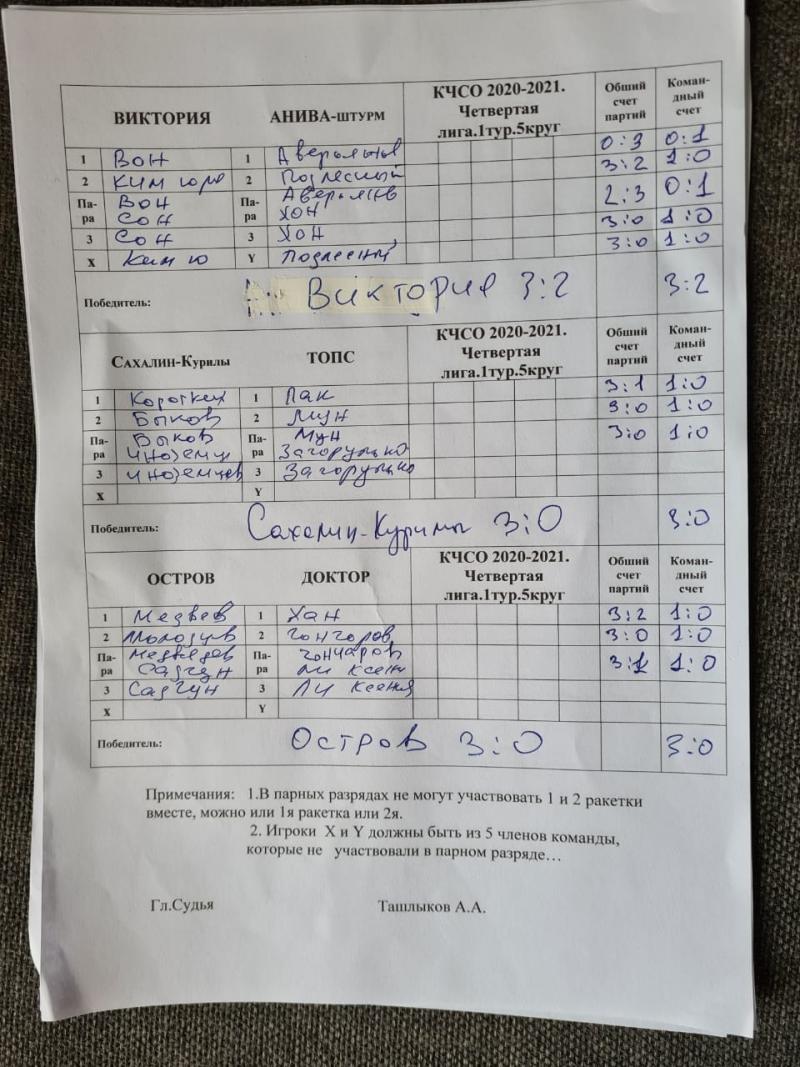 ВИКТОРИЯ АНИВА-ШТУРМ КЧСО 2020-2021. Общий Коман-
Четвертая счет дный
лига.1тур.5круг партий счет
1 Вон 1 0:3 0:1
2 Ким 2 Подлесный 3:2 1:0
Па- Вон Па- 2:3 0:1
ра Сон ра Хон
3 Сон 3 Хон 3:0 1:0
X Ким Ю Y Подлесный 3:0 1:0
Победитель: Виктория 3:2 3:2
САХАЛИН-КУРИЛЫ ТОПС КЧСО 2020-2021. Общий Коман-
Четвертая счет дный
лига.1тур.5круг партий счет
1 Коротких 1 Пак 3:1 1:0
2 Быков 2 Мун 3:0 1:0
Па- Быков Па- Мун 3:0 1:0
ра Иноземц ра Загорулько
3 Иноземцев 3 Загорулько
X Y
Победитель: Сахалин-Курилы 3:0 3:0
ОСТРОВ ДОКТОР КЧСО 2020-2021. Общий Коман-
Четвертая счет дный
лига.1тур.5круг партий счет
1 1 Хан 3:2 1:0
2 2 3:0 1:0
Па- Медведев Па- Гончаров 3:1 1:0
ра Садгун ра Ли Ксени
3 Садгун 3 Ли Ксения
X Y
Победитель: Остров 3:0 3:0
Примечания: 1.В парных разрядах не могут участвовать 1 и 2 ракетки
вместе, можно или 1я ракетка или 2я.
2. Игроки X и Y должны быть из 5 членов команды,
которые не участвовали в парном разряде…
Гл.Судья Ташлыков А.А.